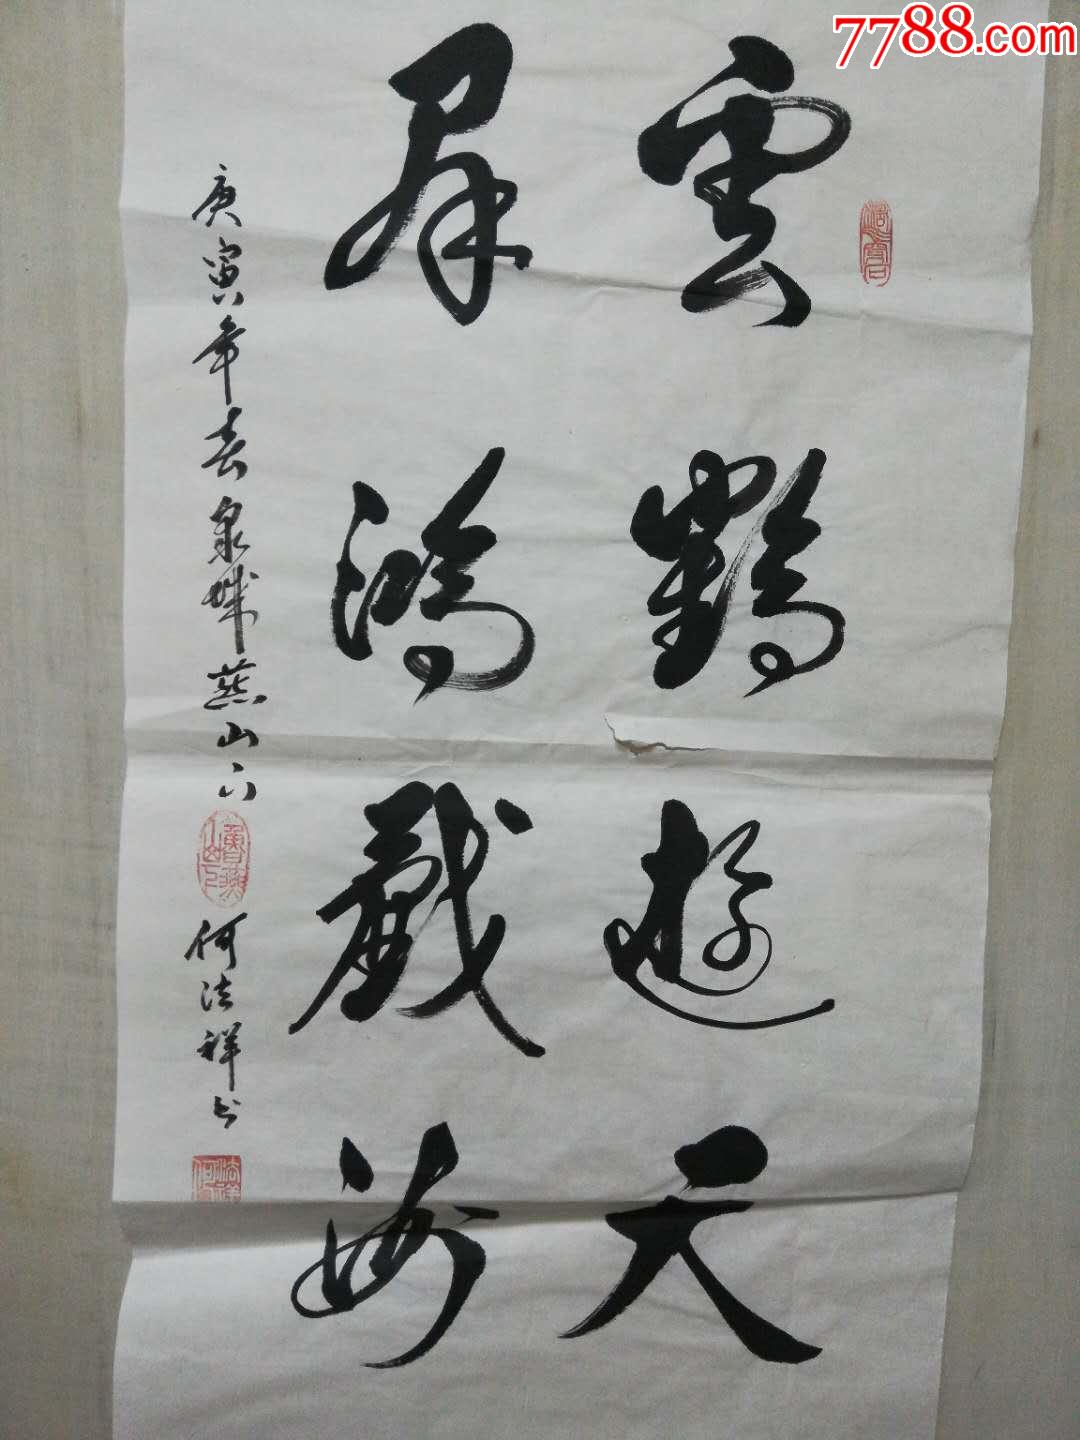 7788.com
雲鶴遊天
群鴻戲海
庚寅年春泉城燕山下
何法祥书